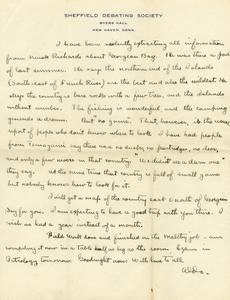 SHEFFIELD DEBATING SOCIETY
BYERS HALL
NEW HAVEN, CONN.
I have been violently extracting all information
from Richards about Georgian Bay. He was there a part
of last summer. He says the northern end of the Islands
(South-east of French River) are the best and also the wildest. He says
the country is bare rocks with a few trees, and the Islands
without number. The fishing is wonderful and the camping
grounds a dream. But no game. That, however, is the usual
report of people who don't know where to look. I have had people
from Temagami say there was no ducks, no partridges, no deer,
and only a few moose in that country. We didn't see a damn one
they say. At the same time that country is full of small game
but nobody knows how to look for it.
I will get a map of the country east & north of Georgian
Bay for you. I am expecting to have a good trip with you there. I
wish we had a year instead of a month.
work done and finished in the lab - am
computing it now in a table half as big as the room. Exam in
tomorrow. Goodnight now. With love to all